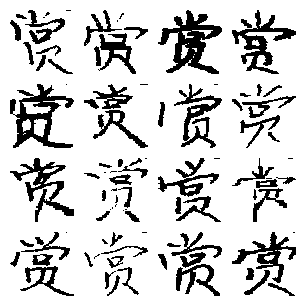 赏赏赏赏
赏赏赏赏
赏赏赏赏
赏赏赏赏